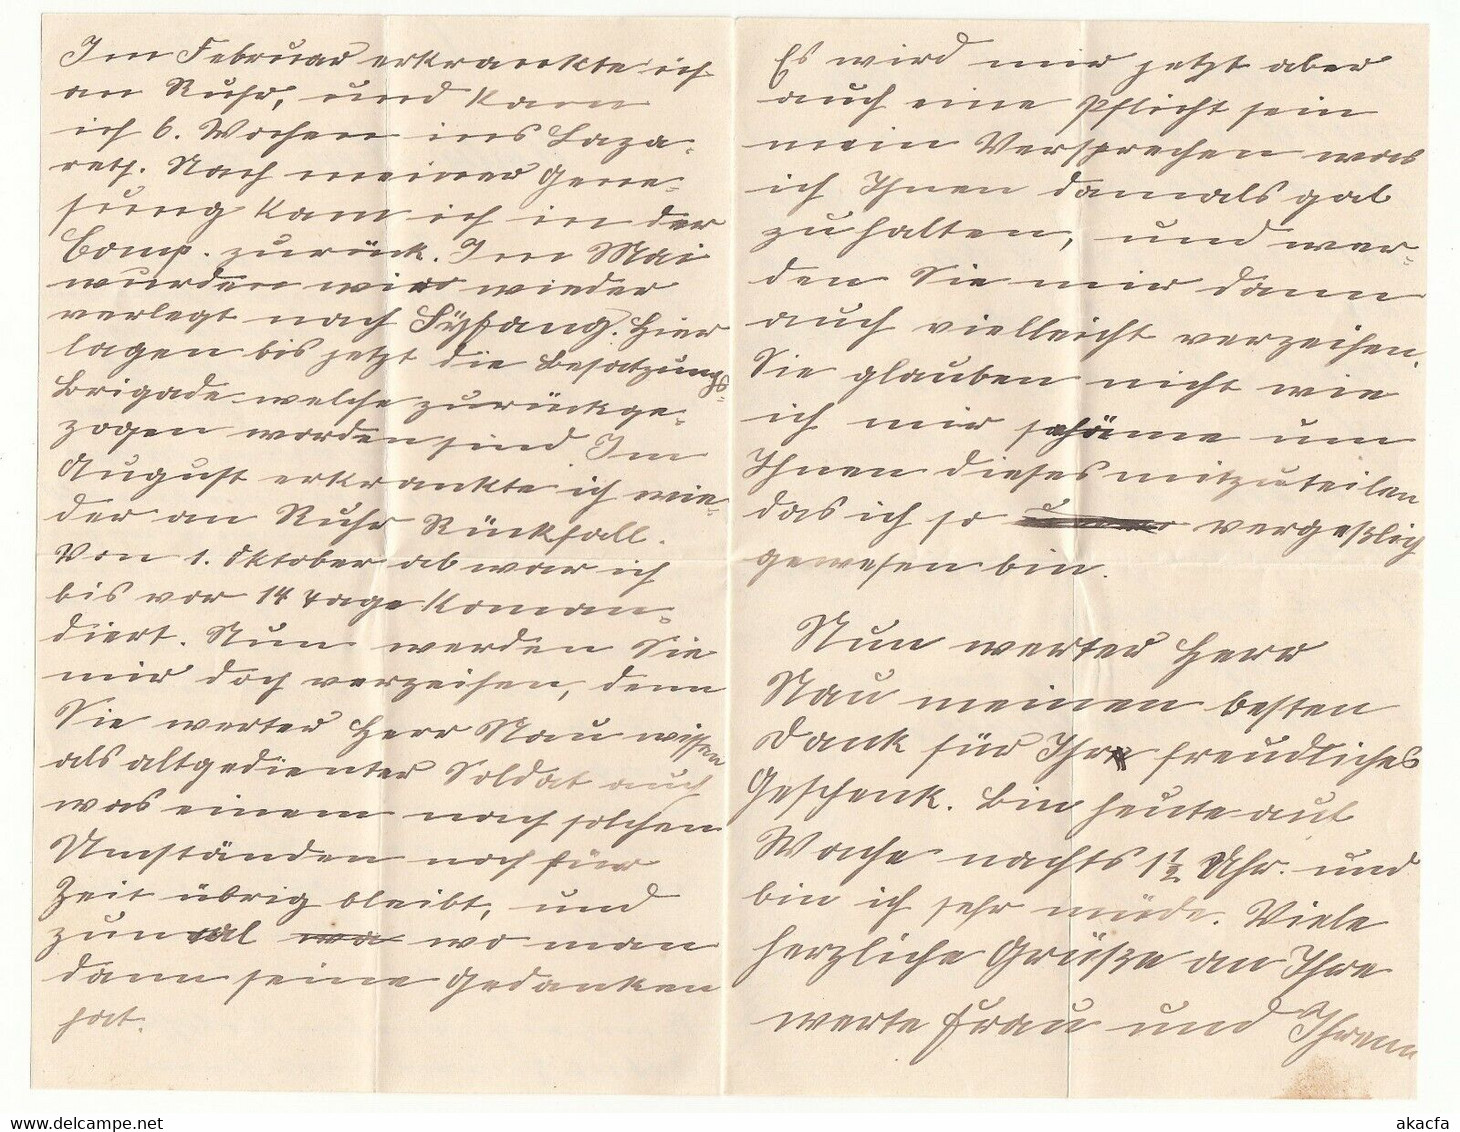 Im Februar erkrankte ich
an Ruhr, und kam
ich 6. Wochen ins Laza-
rett. Nach meiner Gene-
sung kam ich in der
Comp. zurück. Im Mai
wurden wir wieder
verlegt nach Hier
lagen bis jetzt die Besatzungs-
Brigade welche zurückge-
zogen worden sind Im
August erkrankte ich wie-
der an Ruhr Rückfall.
Von 1. Oktober ab war ich
bis vor 14 Tage Koman-
diert. Nun werden Sie
mir doch verzeihen, denn
Sie werter Herr Nau wissen
als altgedienter Soldat auch
was einem nach solchen
Umständen noch für
Zeit übrig bleibt, und
zumal wo man
dann seine Gedanken
hat.
Es wird mir jetzt aber
auch eine Pflicht sein
mein Versprechen was
ich Ihnen damals gab
zu halten, und wer-
den Sie mir dann
auch vielleicht verzeihen.
Sie glauben nicht wie
ich mir schäme um
Ihnen dieses mitzuteilen
das ich so vergeßlich
gewesen bin.
Nun werter Herr
Nau meinen besten
Dank für Ihr freundliches
Geschenk. Bin heute auf
Wache nachts 1 1/2 Uhr. und
bin ich sehr müde. Viele
herzliche Grüße an Ihre
werte Frau und Ihnen
akacfa
www.delcampe.net